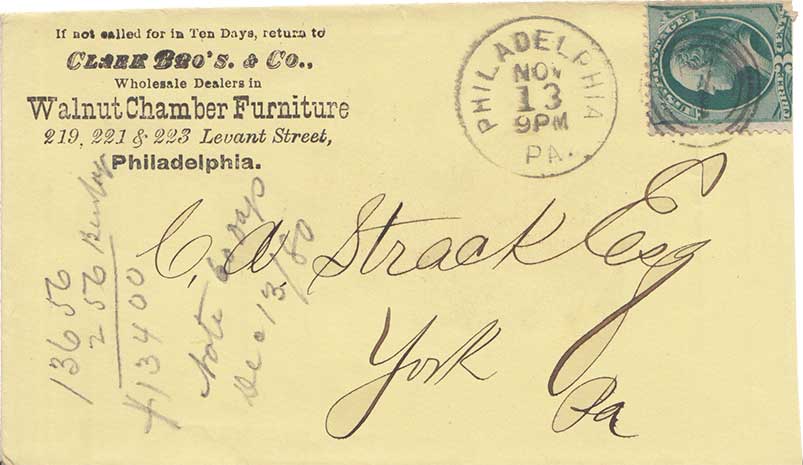 If not called for in Ten Days, return to
CLARK BRO'S. & CO.,
Wholesale Dealers in
Walnut Chamber Furniture
219, 221 & 223 Levant Street,
Philadelphia.
PHILADELPHIA
NOV
13
9PM
PA.
C. A. Strack Esq
York
Pa
136 56
2 56
134 00
Note 30 days
Dec 13/80